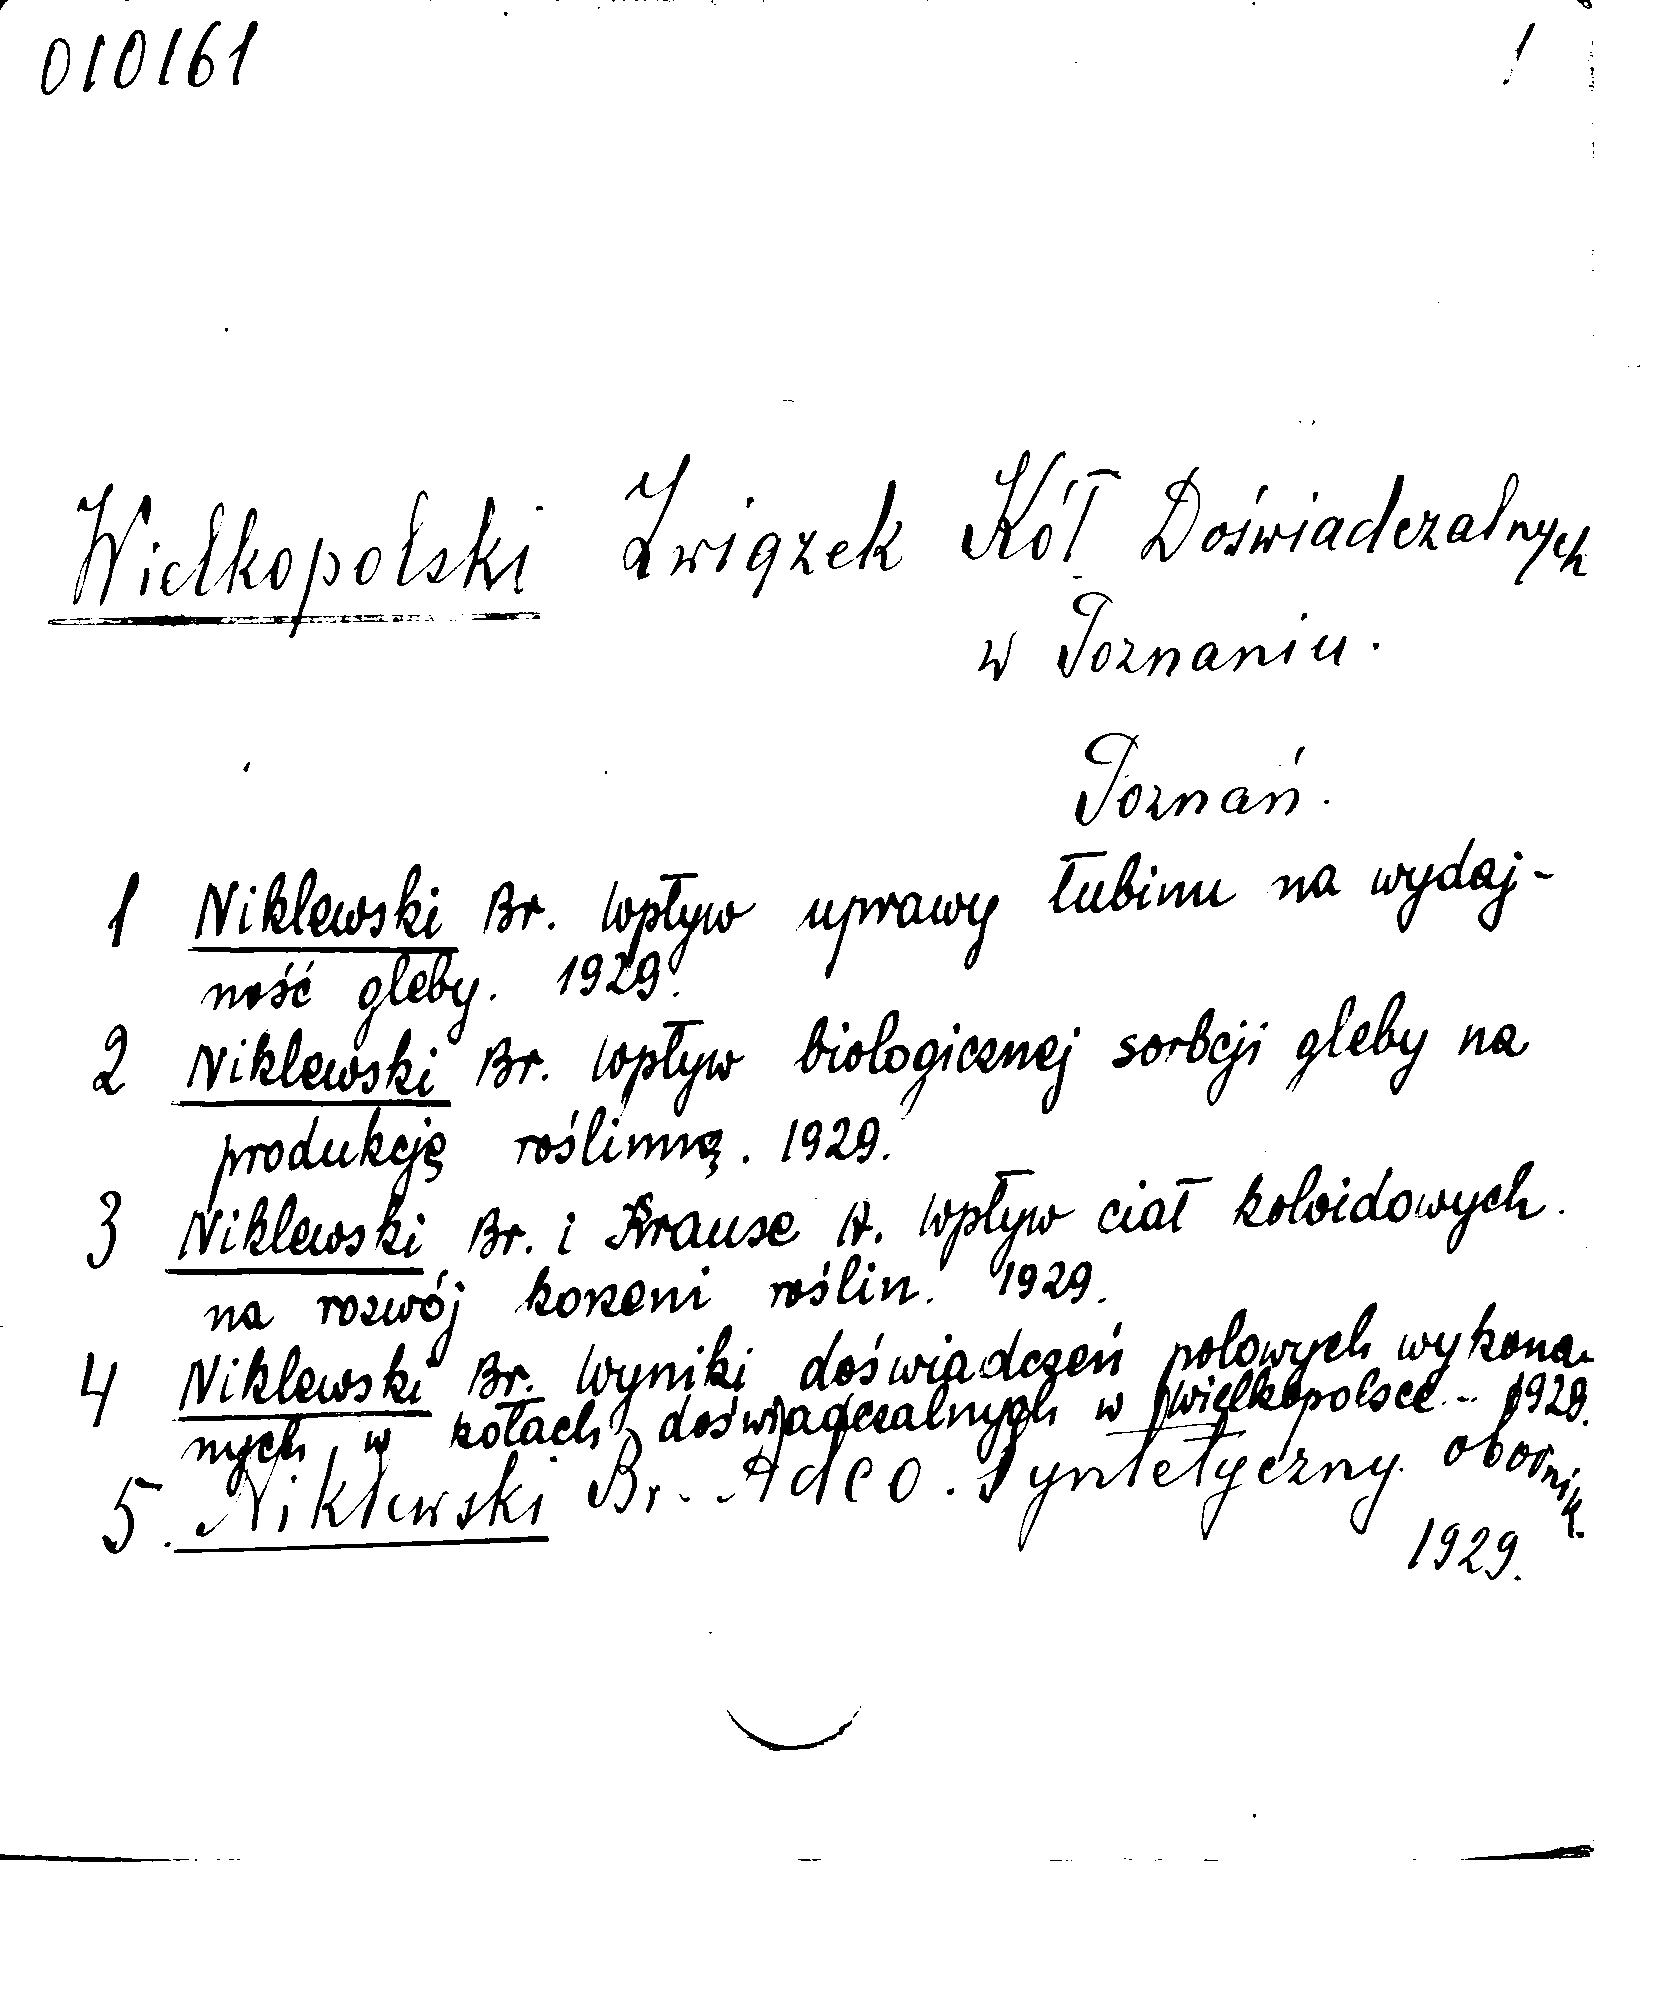 010161
1
Wielkopolski Związek Kół Doświadczalnych
w Poznaniu.
Poznań.
1 Niklewski Br. Wpływ uprawy łubinu na wydaj-
ność gleby. 1929.
2 Niklewski Br. Wpływ biologicznej sorbcji gleby na
produkcję roślinną. 1929.
3 Niklewski Br. i Krause A. Wpływ ciał koloidowych
na rozwój korzeni roślin. 1929.
4 Niklewski Br. Wyniki doświadczeń polowych wykona-
nych w kołach doświadczalnych w Wielkopolsce. - 1929.
5. Niklewski Br. Adco. Syntetyczny obornik.
1929.